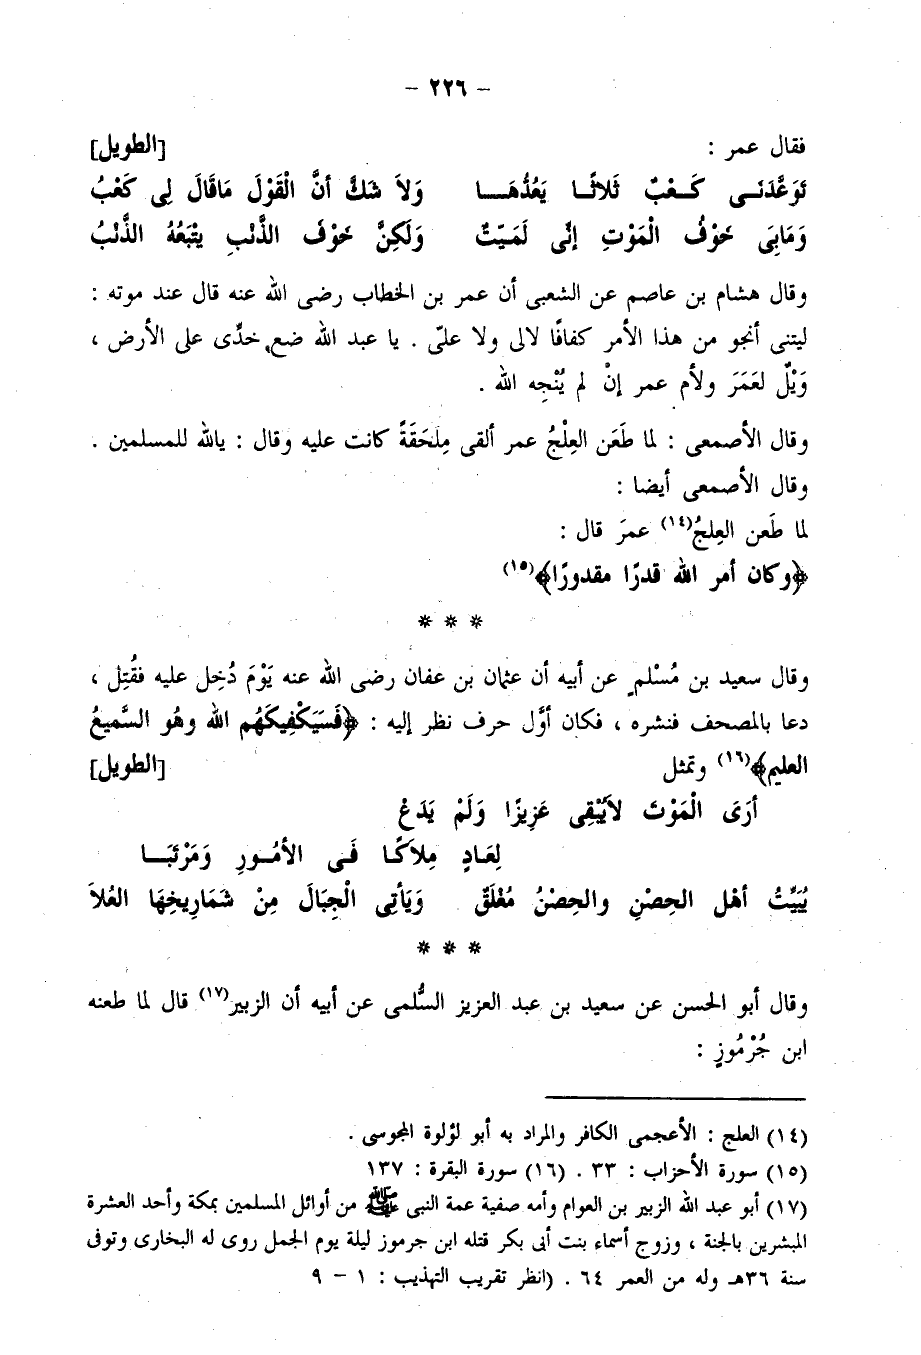 - ٢٢٦ -
فقال عمر : [الطويل]
تَوَعَّدَنَى كَعْبٌ ثَلاثًا يَعُدُّهَا وَلاَ شَكَّ أنَّ الْقَوْلَ مَاقَالَ لِى كَعْبُ
وَمَابِىَ خَوْفُ الْمَوْتِ إنِّى لَمَيّتٌ وَلَكِنَّ خَوْفَ الذَّنْبِ يتْبَعُهُ الذَّنْبُ
وقال هشام بن عاصم عن الشعبى أن عمر بن الخطاب رضى الله عنه قال عند موته :
ليتنى أنجو من هذا الأمر كفافًا لالى ولا علىّ . يا عبد الله ضع خدِّى على الأرض ،
وَيْلٌ لعَمَرَ ولأم عمر إنْ لم يُنْجِه الله .
وقال الأصمعى : لما طَعَن العِلْجُ عمر ألقى مِلحَفَةً كانت عليه وقال : يالله للمسلمين .
وقال الأصمعى أيضا :
لما طَعن العِلجُ(١٤) عمرَ قال :
﴿وكان أمر الله قدرًا مقدورًا﴾(١٥)
* * *
وقال سعيد بن مُسْلم عن أبيه أن عثمان بن عفان رضى الله عنه يَوْمَ دُخِل عليه فقُتِل ،
دعا بالمصحف فنشره ، فكان أوَّل حرف نظر إليه : ﴿فَسَيَكْفِيكَهُم الله وهُو السَّميعُ
العليم﴾(١٦) وتمثل [الطويل]
أرَى الْمَوْتَ لاَيُبْقِى عَزِيزًا وَلَمْ يَدَعْ
لِعَادٍ مِلاَكًا فَى الأمُورِ وَمَرْتَبَا
يُبَيِّتُ أهْل الحِصْنِ والحِصْنُ مُغْلَقٌ وَيَأتِى الْجِبَالَ مِنْ شَمَارِيخِهَا العُلاَ
* * *
وقال أبو الحسن عن سعيد بن عبد العزيز السُّلمى عن أبيه أن الزبير(١٧) قال لما طعنه
ابن جُرْمُوزٍ :
(١٤) العلج : الأعجمى الكافر والمراد به أبو لؤلوة المجوسى .
(١٥) سورة الأحزاب : ٣٣ . (١٦) سورة البقرة : ١٣٧
(١٧) أبو عبد الله الزبير بن العوام وأمه صفية عمة النبى ﷺ من أوائل المسلمين بمكة وأحد العشرة
المبشرين بالجنة ، وزوج أسماء بنت أبى بكر قتله ابن جرموز ليلة يوم الجمل روى له البخارى وتوفى
سنة ٣٦هـ وله من العمر ٦٤ . (انظر تقريب التهذيب : ١ - ٩